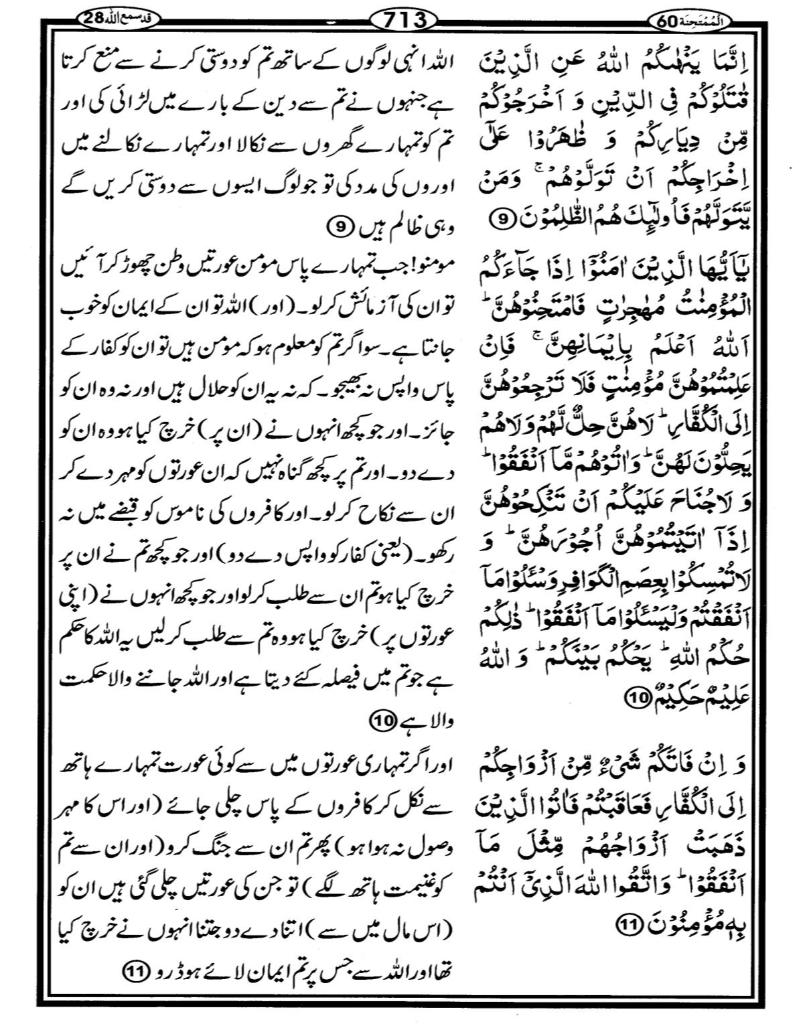 الْمُمْتَحِنَة 60
713
قدسمع اللہ 28
اِنَّمَا يَنْهٰىكُمُ اللّٰهُ عَنِ الَّذِيْنَ
قٰتَلُوْكُمْ فِى الدِّيْنِ وَ اَخْرَجُوْكُمْ
مِّنْ دِيَارِكُمْ وَ ظٰهَرُوْا عَلٰٓى
اِخْرَاجِكُمْ اَنْ تَوَلَّوْهُمْ ۚ وَمَنْ
يَّتَوَلَّهُمْ فَاُولٰٓئِكَ هُمُ الظّٰلِمُوْنَ 9
يٰۤاَيُّهَا الَّذِيْنَ اٰمَنُوْۤا اِذَا جَآءَكُمُ
الْمُؤْمِنٰتُ مُهٰجِرٰتٍ فَامْتَحِنُوْهُنَّ ؕ
اَللّٰهُ اَعْلَمُ بِاِيْمَانِهِنَّ ۚ فَاِنْ
عَلِمْتُمُوْهُنَّ مُؤْمِنٰتٍ فَلَا تَرْجِعُوْهُنَّ
اِلَى الْكُفَّارِ ؕ لَاهُنَّ حِلٌّ لَّهُمْ وَلَاهُمْ
يَحِلُّوْنَ لَهُنَّ ؕ وَاٰتُوْهُمْ مَّاۤ اَنْفَقُوْا ؕ
وَ لَاجُنَاحَ عَلَيْكُمْ اَنْ تَنْكِحُوْهُنَّ
اِذَاۤ اٰتَيْتُمُوْهُنَّ اُجُوْرَهُنَّ ؕ وَ
لَاتُمْسِكُوْا بِعِصَمِ الْكَوَافِرِ وَسْـَٔلُوْا مَاۤ
اَنْفَقْتُمْ وَلْيَسْـَٔلُوْا مَاۤ اَنْفَقُوْا ؕ ذٰلِكُمْ
حُكْمُ اللّٰهِ ؕ يَحْكُمُ بَيْنَكُمْ ؕ وَ اللّٰهُ
عَلِيْمٌ حَكِيْمٌ 10
وَ اِنْ فَاتَكُمْ شَيْءٌ مِّنْ اَزْوَاجِكُمْ
اِلَى الْكُفَّارِ فَعَاقَبْتُمْ فَاٰتُوا الَّذِيْنَ
ذَهَبَتْ اَزْوَاجُهُمْ مِّثْلَ مَاۤ
اَنْفَقُوْا ؕ وَاتَّقُوا اللّٰهَ الَّذِىْۤ اَنْتُمْ
بِهٖ مُؤْمِنُوْنَ 11
اللہ انہی لوگوں کے ساتھ تم کو دوستی کرنے سے منع کرتا
ہے جنہوں نے تم سے دین کے بارے میں لڑائی کی اور
تم کو تمہارے گھروں سے نکالا اور تمہارے نکالنے میں
اوروں کی مدد کی تو جو لوگ ایسوں سے دوستی کریں گے
وہی ظالم ہیں 9
مومنو! جب تمہارے پاس مومن عورتیں وطن چھوڑ کر آئیں
تو ان کی آزمائش کرلو۔ (اور) اللہ تو ان کے ایمان کو خوب
جانتا ہے۔ سو اگر تم کو معلوم ہو کہ مومن ہیں تو ان کو کفار کے
پاس واپس نہ بھیجو۔ کہ نہ یہ ان کو حلال ہیں اور نہ وہ ان کو
جائز۔ اور جو کچھ انہوں نے (ان پر) خرچ کیا ہو وہ ان کو
دے دو۔ اور تم پر کچھ گناہ نہیں کہ ان عورتوں کو مہر دے کر
ان سے نکاح کرلو۔ اور کافروں کی ناموس کو قبضے میں نہ
رکھو۔ (یعنی کفار کو واپس دے دو) اور جو کچھ تم نے ان پر
خرچ کیا ہو تم ان سے طلب کرلو اور جو کچھ انہوں نے (اپنی
عورتوں پر) خرچ کیا ہو وہ تم سے طلب کرلیں یہ اللہ کا حکم
ہے جو تم میں فیصلہ کئے دیتا ہے اور اللہ جاننے والا حکمت
والا ہے 10
اور اگر تمہاری عورتوں میں سے کوئی عورت تمہارے ہاتھ
سے نکل کر کافروں کے پاس چلی جائے (اور اس کا مہر
وصول نہ ہوا ہو) پھر تم ان سے جنگ کرو (اور ان سے تم
کو غنیمت ہاتھ لگے) تو جن کی عورتیں چلی گئی ہیں ان کو
(اس مال میں سے) اتنا دے دو جتنا انہوں نے خرچ کیا
تھا اور اللہ سے جس پر تم ایمان لائے ہو ڈرو 11